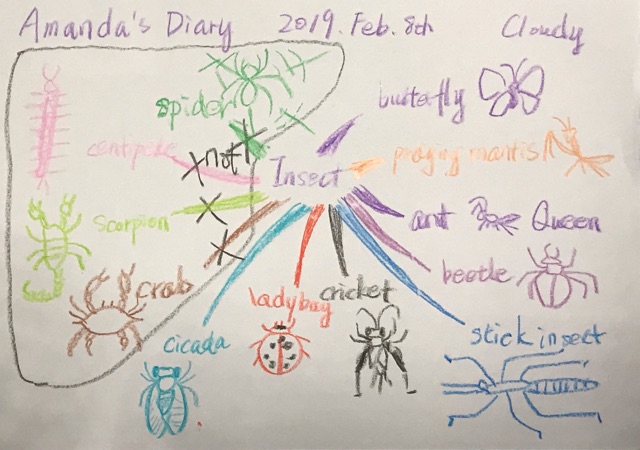 Amanda's Diary 2019. Feb. 8th Cloudy
butterfly
spider
centipede
not
praying mantis
Insect
scorpion
ant Queen
beetle
crab
ladybug
cricket
cicada
stick insect